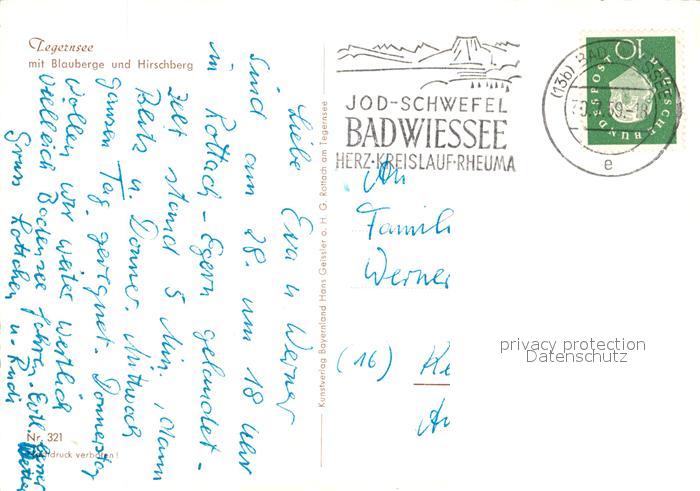 Tegernsee
mit Blauberge und Hirschberg
Liebe Eva u Werner
Sind am 28. um 18 Uhr
in Rottach-Egern gelandet-
Zelt stand 5 Min., dann
Blitz u. Donner. Mittwoch
ganzen Tag geregnet. Donnerstag
wollen wir weiter westlich
vielleich Bodensee fahren.
Gruss Lottchen u. Rudi
Nr. 321
Nachdruck verboten!
Kunstverlag Bayernland Hans Geissler o. H. G. Rottach am Tegernsee
JOD-SCHWEFEL
BAD WIESSEE
HERZ·KREISLAUF·RHEUMA
(13b) BAD
e
10
DEUTSCHE BUNDESPOST
An
Famili
Werner
(16)
privacy protection
Datenschutz